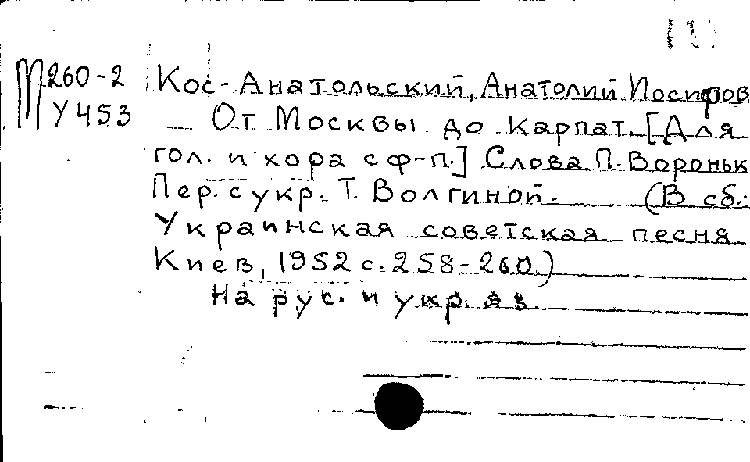 М260-2
У453
Кос-Анатольский, Анатолий Йосипов
— От Москвы до Карпат. [Для
гол. и хора с ф-п.] Слова П. Вороньк
Пер. с укр. Т. Волгиной. (В сб.:
Украинская советская песня
Киев, 1952 с. 258-260.)
На рус. и укр. яз.